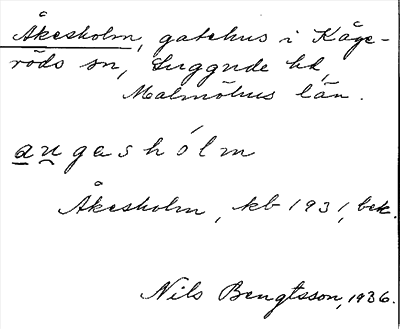 Åkesholm, gatehus i Kåge-
röds sn, Luggude hd,
Malmöhus län.
au̯gashólm
Åkesholm, kb 1931, bek.
Nils Bengtsson, 1936.